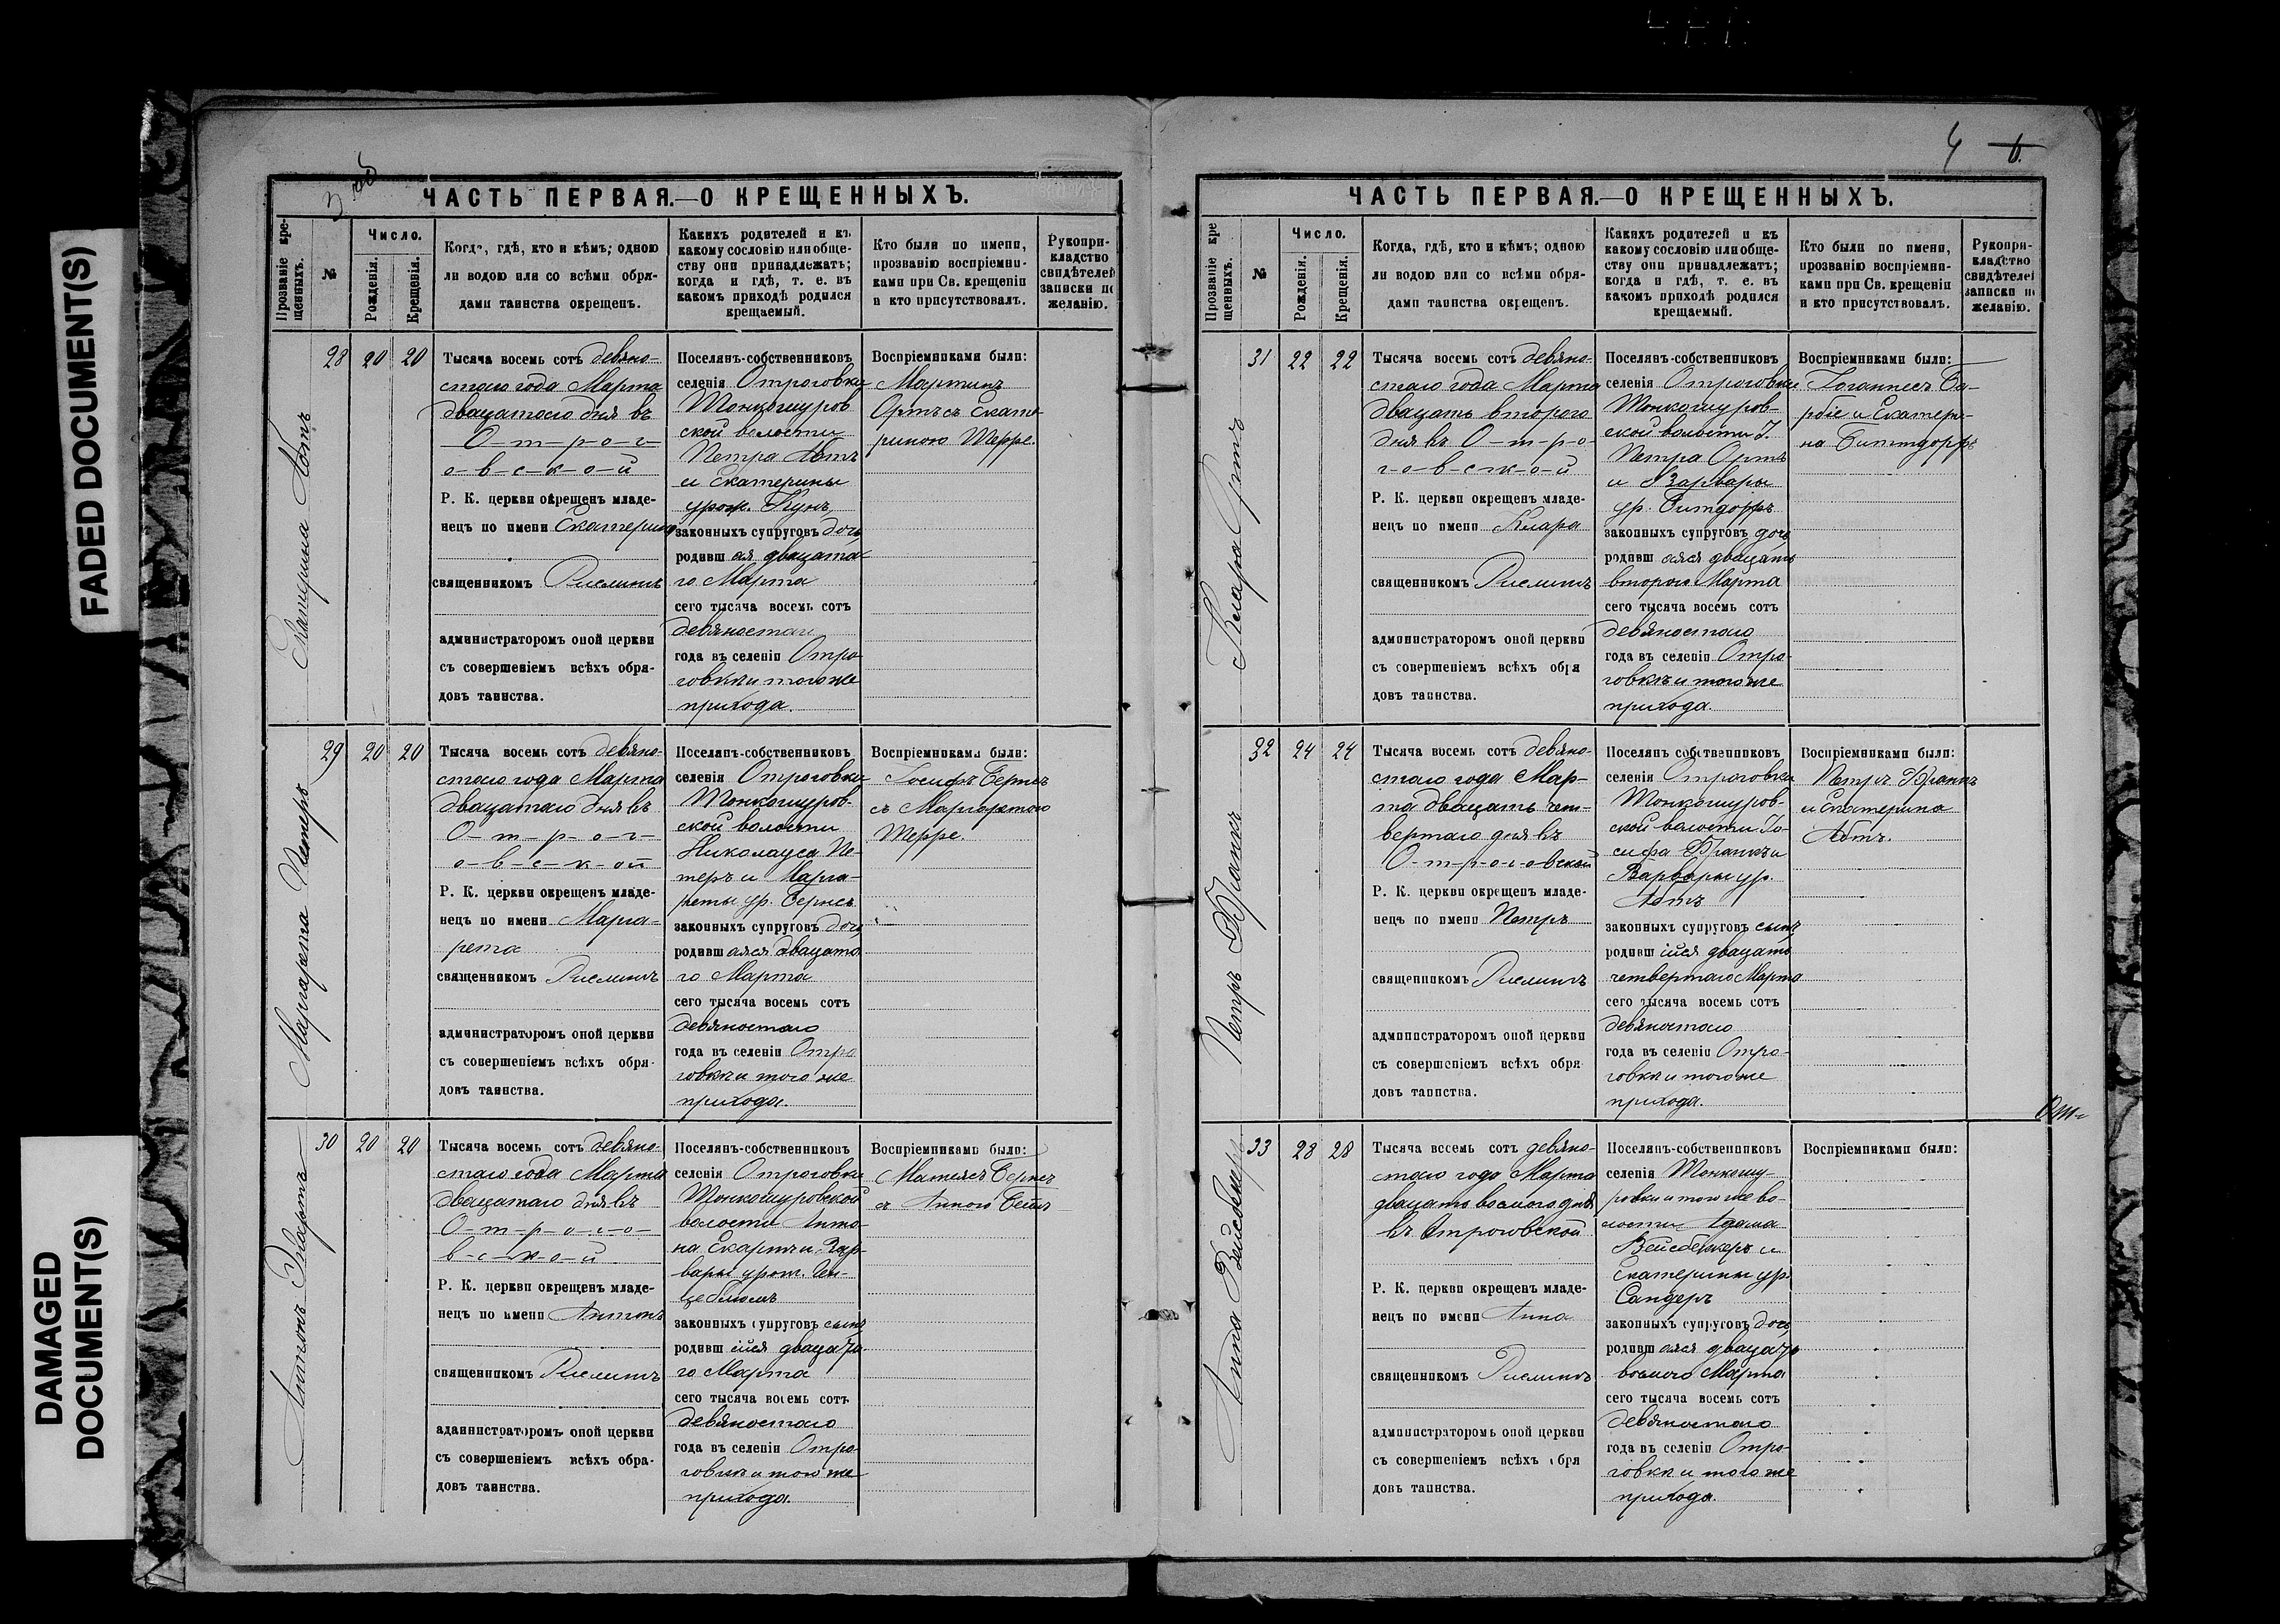 FADED DOCUMENT(S)
DAMAGED
DOCUMENT(S)
3 об
ЧАСТЬ ПЕРВАЯ.—О КРЕЩЕННЫХЪ.
Прозваніе кре-
щенныхъ.
№
Число.
Рожденія.
Крещенія.
Когда, гдѣ, кто и кѣмъ; одною
ли водою или со всѣми обря-
дами таинства окрещенъ.
Какихъ родителей и къ
какому сословію или обще-
ству они принадлежатъ;
когда и гдѣ, т. е. въ
какомъ приходѣ родился
крещаемый.
Кто были по имени,
прозванію воспріемни-
ками при Св. крещеніи
и кто присутствовалъ.
Рукопри-
кладство
свидѣтелей
записки по
желанію.
Екатерина Абтъ
28
20
20
Тысяча восемь сотъ девяно-
стаго года Марта
двацатаго дня въ
О-т-р-о-г-
о-в-с-к-о-й
Р. К. церкви окрещенъ младе-
нецъ по имени Екатерина
священникомъ Рислингъ
администраторомъ оной церкви
съ совершеніемъ всѣхъ обря-
довъ таинства.
Поселянъ-собственниковъ
селенія Отроговки
Тонкошуров
ской волости
Петра Абтъ
и Екатерины
урож. Кунъ
законныхъ супруговъ дочь
родивш ая двацата
го Марта
сего тысяча восемь сотъ
девяностаго
года въ селеніи Отро-
говки и того же
прихода.
Воспріемниками были:
Мартинъ
Ортъ съ Екате
риною Шерре.
Маргарета Петеръ
29
20
20
Тысяча восемь сотъ девяно-
стаго года Марта
двацатаго дня въ
О-т-р-о-г-
о-в-с-к-ой
Р. К. церкви окрещенъ младе-
нецъ по имени Марга-
рета
священникомъ Рислингъ
администраторомъ оной церкви
съ совершеніемъ всѣхъ обря-
довъ таинства.
Поселянъ-собственниковъ
селенія Отроговки
Тонкошуров-
ской волости
Николауса Пе-
теръ и Марга-
реты ур. Бернсъ
законныхъ супруговъ дочь
родивш аяся двацата
го Марта
сего тысяча восемь сотъ
девяностаго
года въ селеніи Отро
говки и того же
прихода.
Воспріемниками были:
Іосифъ Бернсъ
съ Маргаретою
Шерре.
Антонъ Экартъ
30
20
20
Тысяча восемь сотъ девяно-
стаго года Марта
двацатаго дня въ
О-т-р-о-г-о-
в-с-к-о-й
Р. К. церкви окрещенъ младе-
нецъ по имени Антонъ
священникомъ Рислингъ
администраторомъ оной церкви
съ совершеніемъ всѣхъ обря-
довъ таинства.
Поселянъ-собственниковъ
селенія Отроговки
Тонкошуровской
волости Анто-
на Екартъ и Вар-
вары урож.
законныхъ супруговъ сынъ
родивш ійся двацата
го Марта
сего тысяча восемь сотъ
девяностаго
года въ селеніи Отро-
говки и того же
прихода.
Воспріемниками были:
Матіясъ Бернсъ
съ Анною
4 6.
ЧАСТЬ ПЕРВАЯ.—О КРЕЩЕННЫХЪ.
Прозваніе кре
щенныхъ.
№
Число.
Рожденія.
Крещенія.
Когда, гдѣ, кто и кѣмъ; одною
ли водою или со всѣми обря-
дами таинства окрещенъ.
Какихъ родителей и къ
какому сословію или обще-
ству они принадлежатъ;
когда и гдѣ, т. е. въ
какомъ приходѣ родился
крещаемый.
Кто были по имени,
прозванію воспріемни-
ками при Св. крещеніи
и кто присутствовалъ.
Рукопри-
кладство
свидѣтелей
записки по
желанію.
Клара Ортъ
31
22
22
Тысяча восемь сотъ девяно-
стаго года Марта
двацать второго
дня въ О-т-р-о-
г-о-в-с-к-о-й
Р. К. церкви окрещенъ младе-
нецъ по имени Клара
священникомъ Рислингъ
администраторомъ оной церкви
съ совершеніемъ всѣхъ обря
довъ таинства.
Поселянъ-собственниковъ
селенія Отроговки
Тонкошуров-
ской волости І.
Петра Ортъ
и Варвары
ур. Битдорфъ
законныхъ супруговъ дочь
родивш аяся двацать
второго Марта
сего тысяча восемь сотъ
девяностаго
года въ селеніи Отро-
говкѣ и того же
прихода.
Воспріемниками были:
Іоганнесъ Ба-
рбіе и Екатери-
на Биттдорфъ
Петръ Франкъ
32
24
24
Тысяча восемь сотъ девяно-
стаго года Мар-
та двацать чет-
вертаго дня въ
О-т-р-о-г-овской
Р. К. церкви окрещенъ младе-
нецъ по имени Петръ
священникомъ Рислингъ
администраторомъ оной церкви
съ совершеніемъ всѣхъ обря
довъ таинства.
Поселянъ собственниковъ
селенія Отроговки
Тонкошуров-
ской волости Іо-
сифа Франкъ и
Варвары ур.
Абтъ
законныхъ супруговъ сынъ
родивш ійся двацать
четвертаго Марта
сего тысяча восемь сотъ
девяностаго
года въ селеніи Отро-
говки и того же
прихода.
Воспріемниками были:
Петръ Франкъ
и Екатерина
Абтъ.
Анна Вейсбекеръ
33
28
28
Тысяча восемь сотъ девяно-
стаго года Марта
двацать восмого дня
въ Отроговской
Р. К. церкви окрещенъ младе-
нецъ по имени Анна
священникомъ Рислингъ
администраторомъ оной церкви
съ совершеніемъ всѣхъ обря
довъ таинства.
Поселянъ-собственниковъ
селенія Тонкошу-
ровки и того же во-
лости Адама
Вейсбеккеръ и
Екатерины ур.
Сандеръ
законныхъ супруговъ дочь
родивш аяся двацать
восмого Марта
сего тысяча восемь сотъ
девяностаго
года въ селеніи Отро-
говки и того же
прихода.
Воспріемниками были: